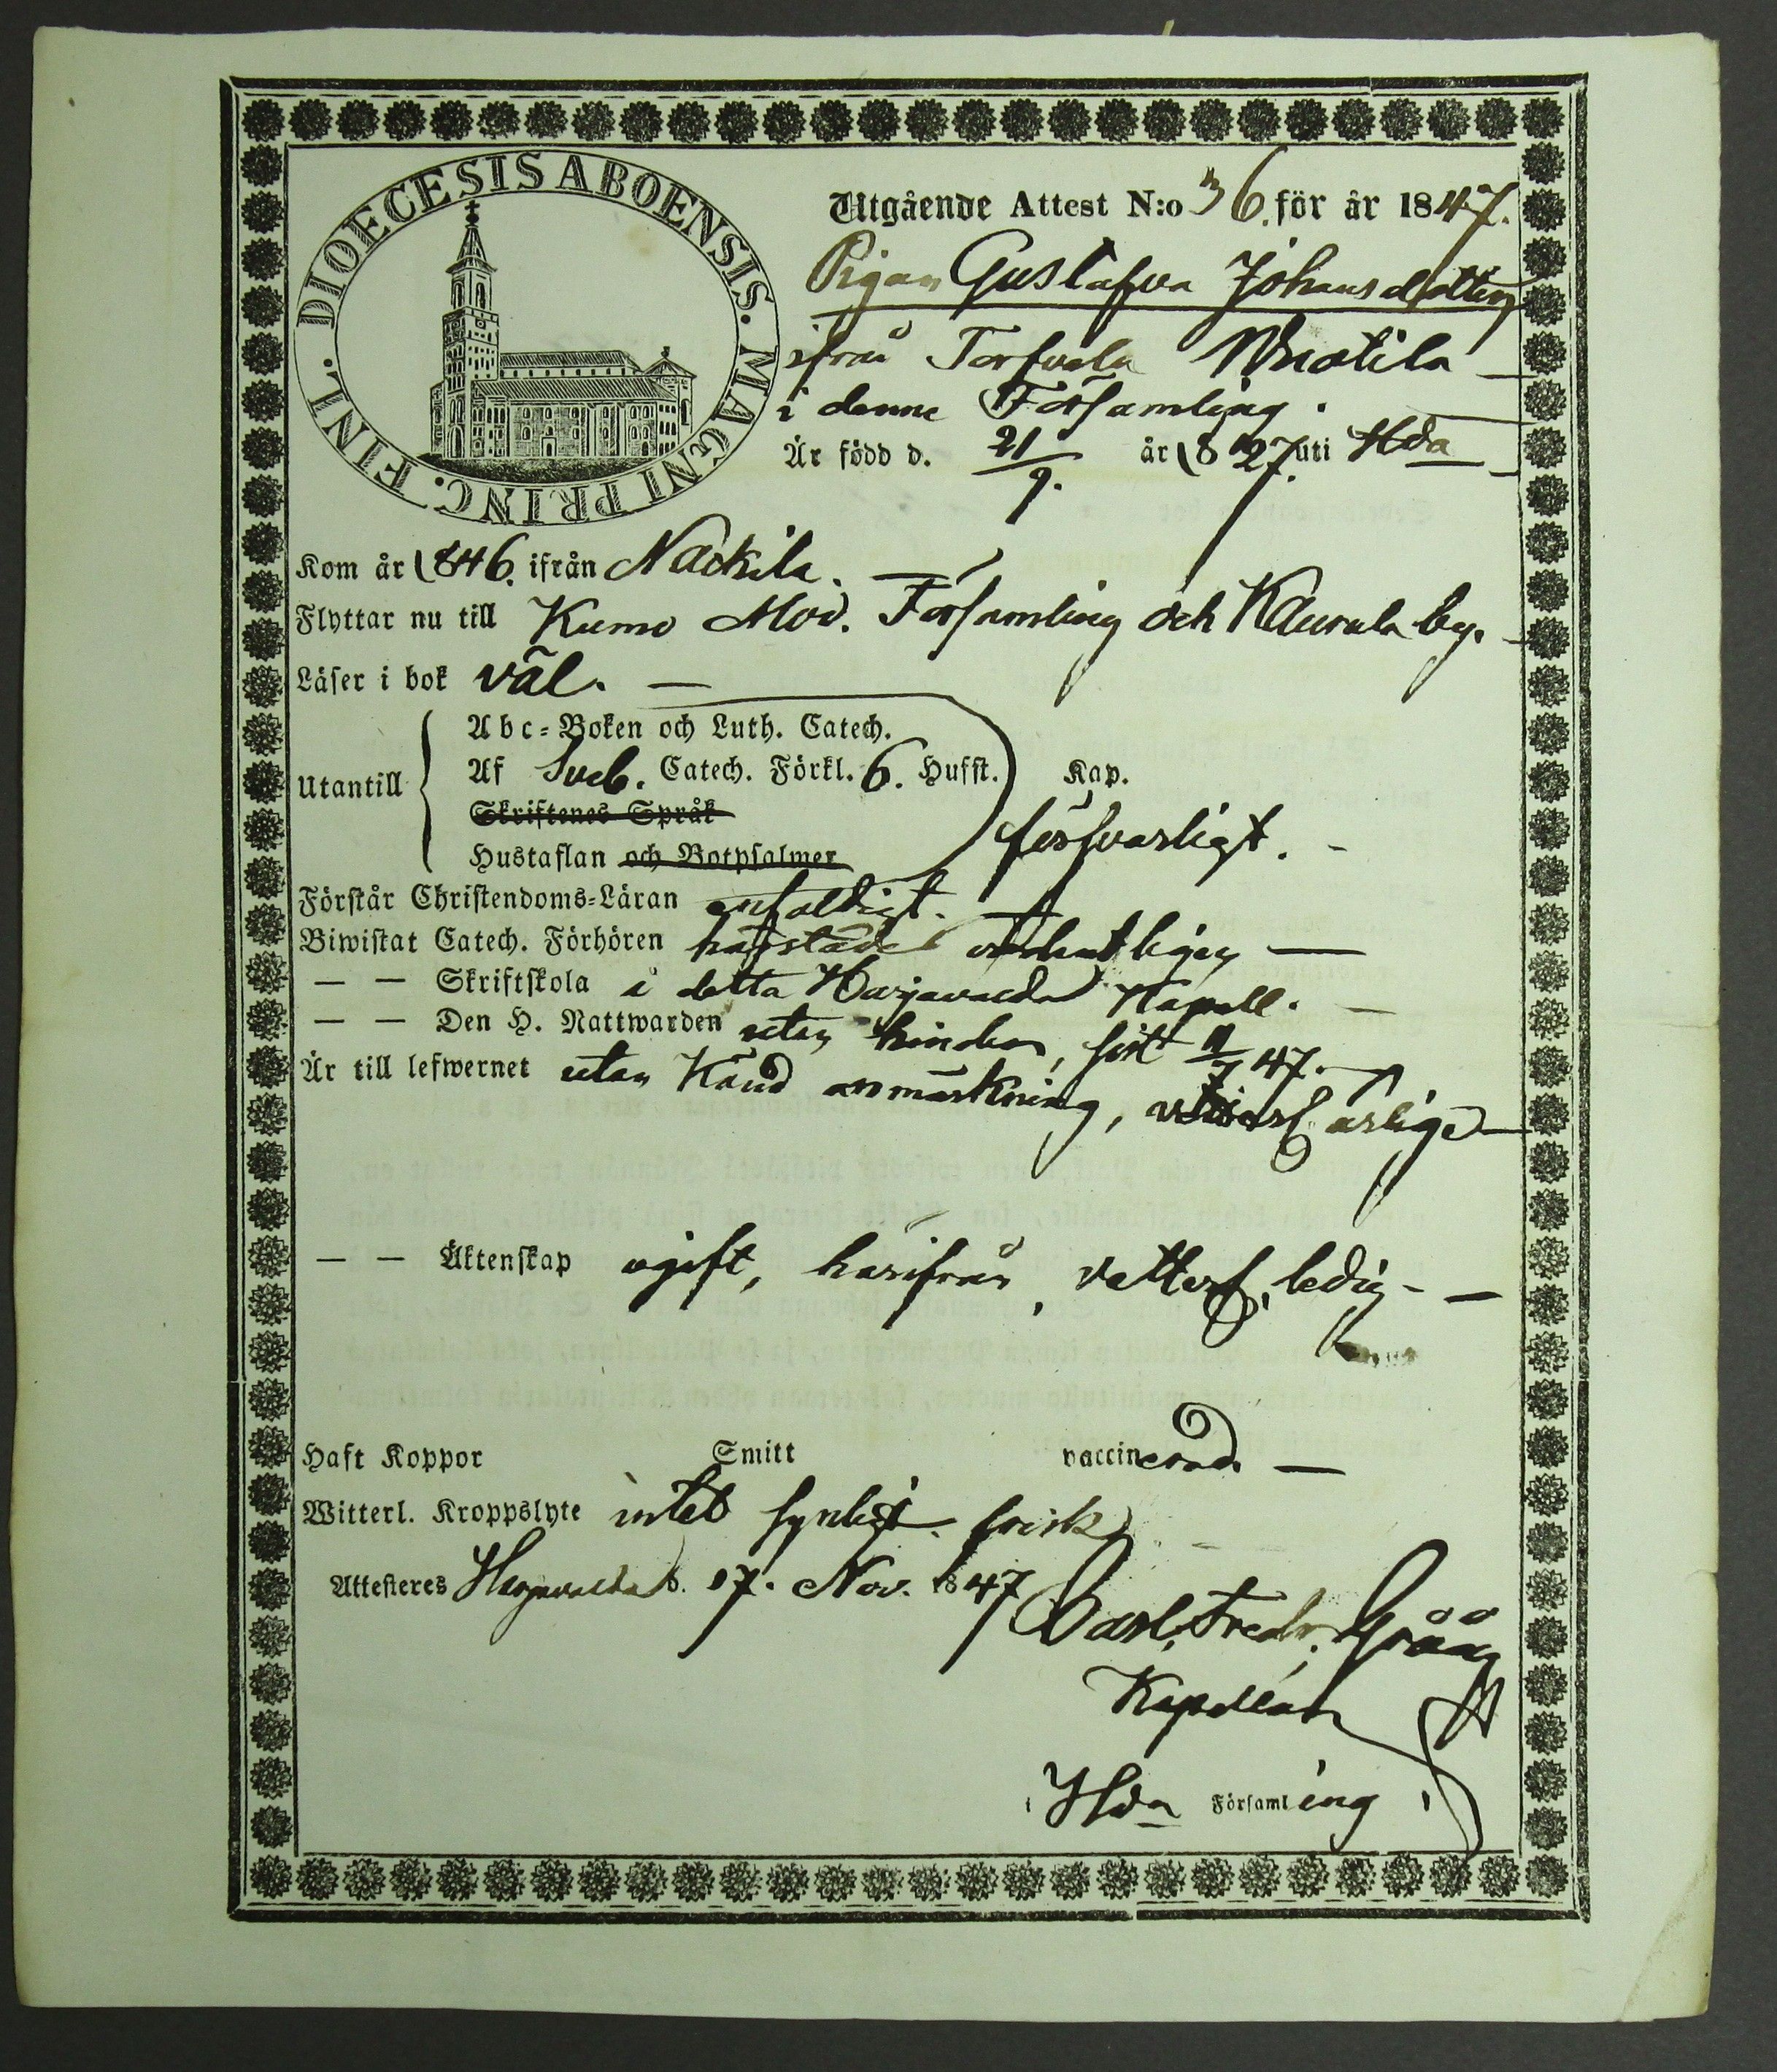 DIOECESIS ABOENSIS. MAGNI PRINC. FINL.
Utgående Attest N:o 36. för år 1847.
Pigan Gustafva Johansdotter
ifrån Torfvela
i denne Församling.
Är född d. 21/9. år 1827. uti Hda
Kom år 1846. ifrån Nackila.
Flyttar nu till Kumo Mod. Församling och Kaurula by.
Läser i bok väl.
Utantill
Abc-Boken och Luth. Catech.
Af Sveb. Catech. Förkl. 6. Hufst. Kap.
Skriftenes Språk
Hustaflan och Botpsalmer
försvarligt.
Förstår Christendoms-Läran enfaldigt.
Biwistat Catech. Förhören härstädes ordentligen
— — Skriftskola i detta Harjavalda Kapell.
— — Den H. Nattwarden utan hinder, sist /7 47.
Är till lefwernet utan känd anmärkning, ärlig
— — Äktenskap ogift, härifrån, vetterl. ledig
Haft Koppor Smitt vaccinerad.
Witterl. Kroppslyte intet synligt. frisk
Attesteres Harjavalda d. 17. Nov. 1847
Carl Fredr. Grååg
Kapellan
i Hda Församling